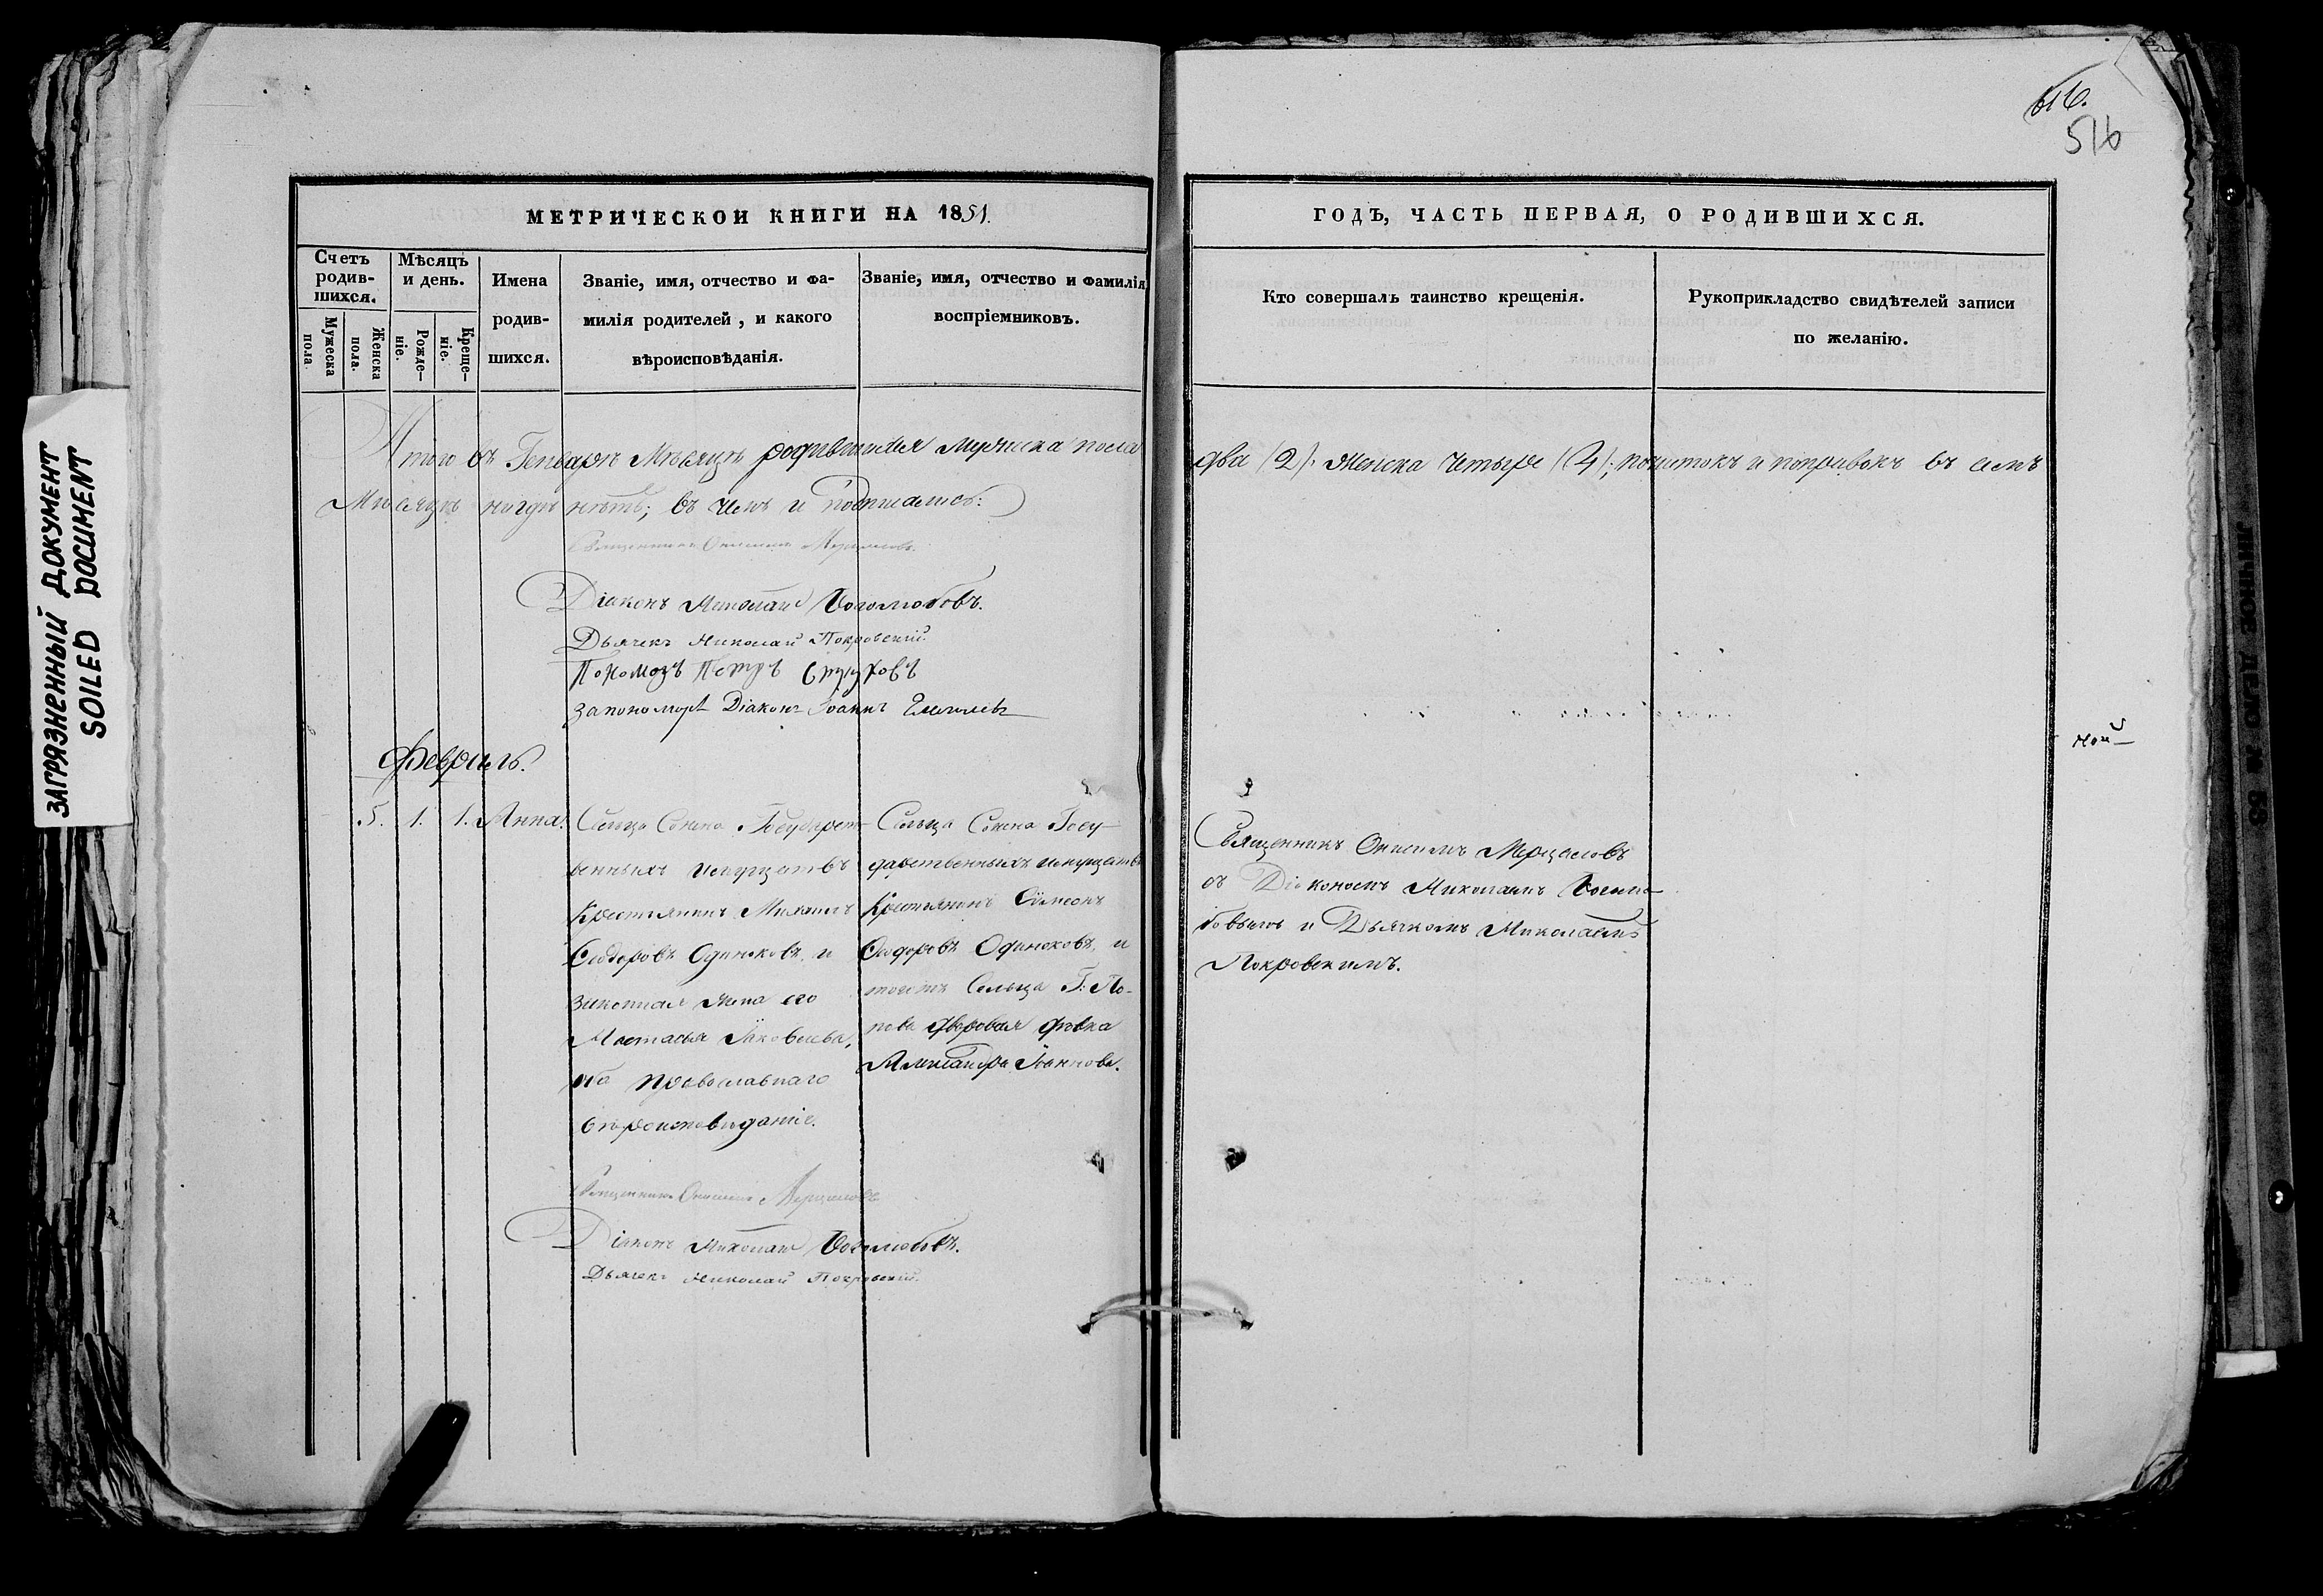 516.
516
ЗАГРЯЗНЕННЫЙ ДОКУМЕНТ
SOILED DOCUMENT
МЕТРИЧЕСКОИ КНИГИ НА 1851.
Счетъ родив-
шихся.
Мужеска пола
Женска пола.
Мѣсяцъ
и день.
Рожде-
ніе.
Креще-
ніе.
Имена
родив-
шихся.
Званіе, имя, отчество и фа-
милія родителей, и какого
вѣроисповѣданія.
Званіе, имя, отчество и фамилія
воспріемниковъ.
ГОДЪ, ЧАСТЬ ПЕРВАЯ, О РОДИВШИХСЯ.
Кто совершалъ таинство крещенія.
Рукоприкладство свидѣтелей записи
по желанію.
Итого въ Генварѣ Мѣсяцѣ родившихся Мужеска пола
два (2): Женска четыре (4); почистокъ и поправокъ въ семъ
Мѣсяцѣ нигдѣ нѣтъ; въ чемъ и подписались:
Священникъ Онисимъ
Діаконъ Николай Боголюбовъ.
Дьячекъ Николай Покровскій.
Пономарь Петръ
Діаконъ Іоаннъ
Февраль.
5. 1. 1. Анна.
Сельца Государст-
венныхъ имуществъ
Крестьянинъ Михаилъ
Сидоровъ Одиноковъ, и
законная жена его
Настасья Яковлева,
оба православнаго
вѣроисповѣданія.
Сельца Госу-
дарственныхъ имуществъ
Крестьянинъ Симеонъ
Сидоровъ Одиноковъ, и
тогожъ Сельца Г: По-
пова дворовая дѣвка
Александра Іоаннова.
Священникъ Онисимъ
съ Діакономъ Николаемъ Боголю-
бовымъ и Дьячкомъ Николаемъ
Покровскимъ.
ной
Священникъ Онисимъ
Діаконъ Николай Боголюбовъ.
Дьячекъ Николай Покровскій.